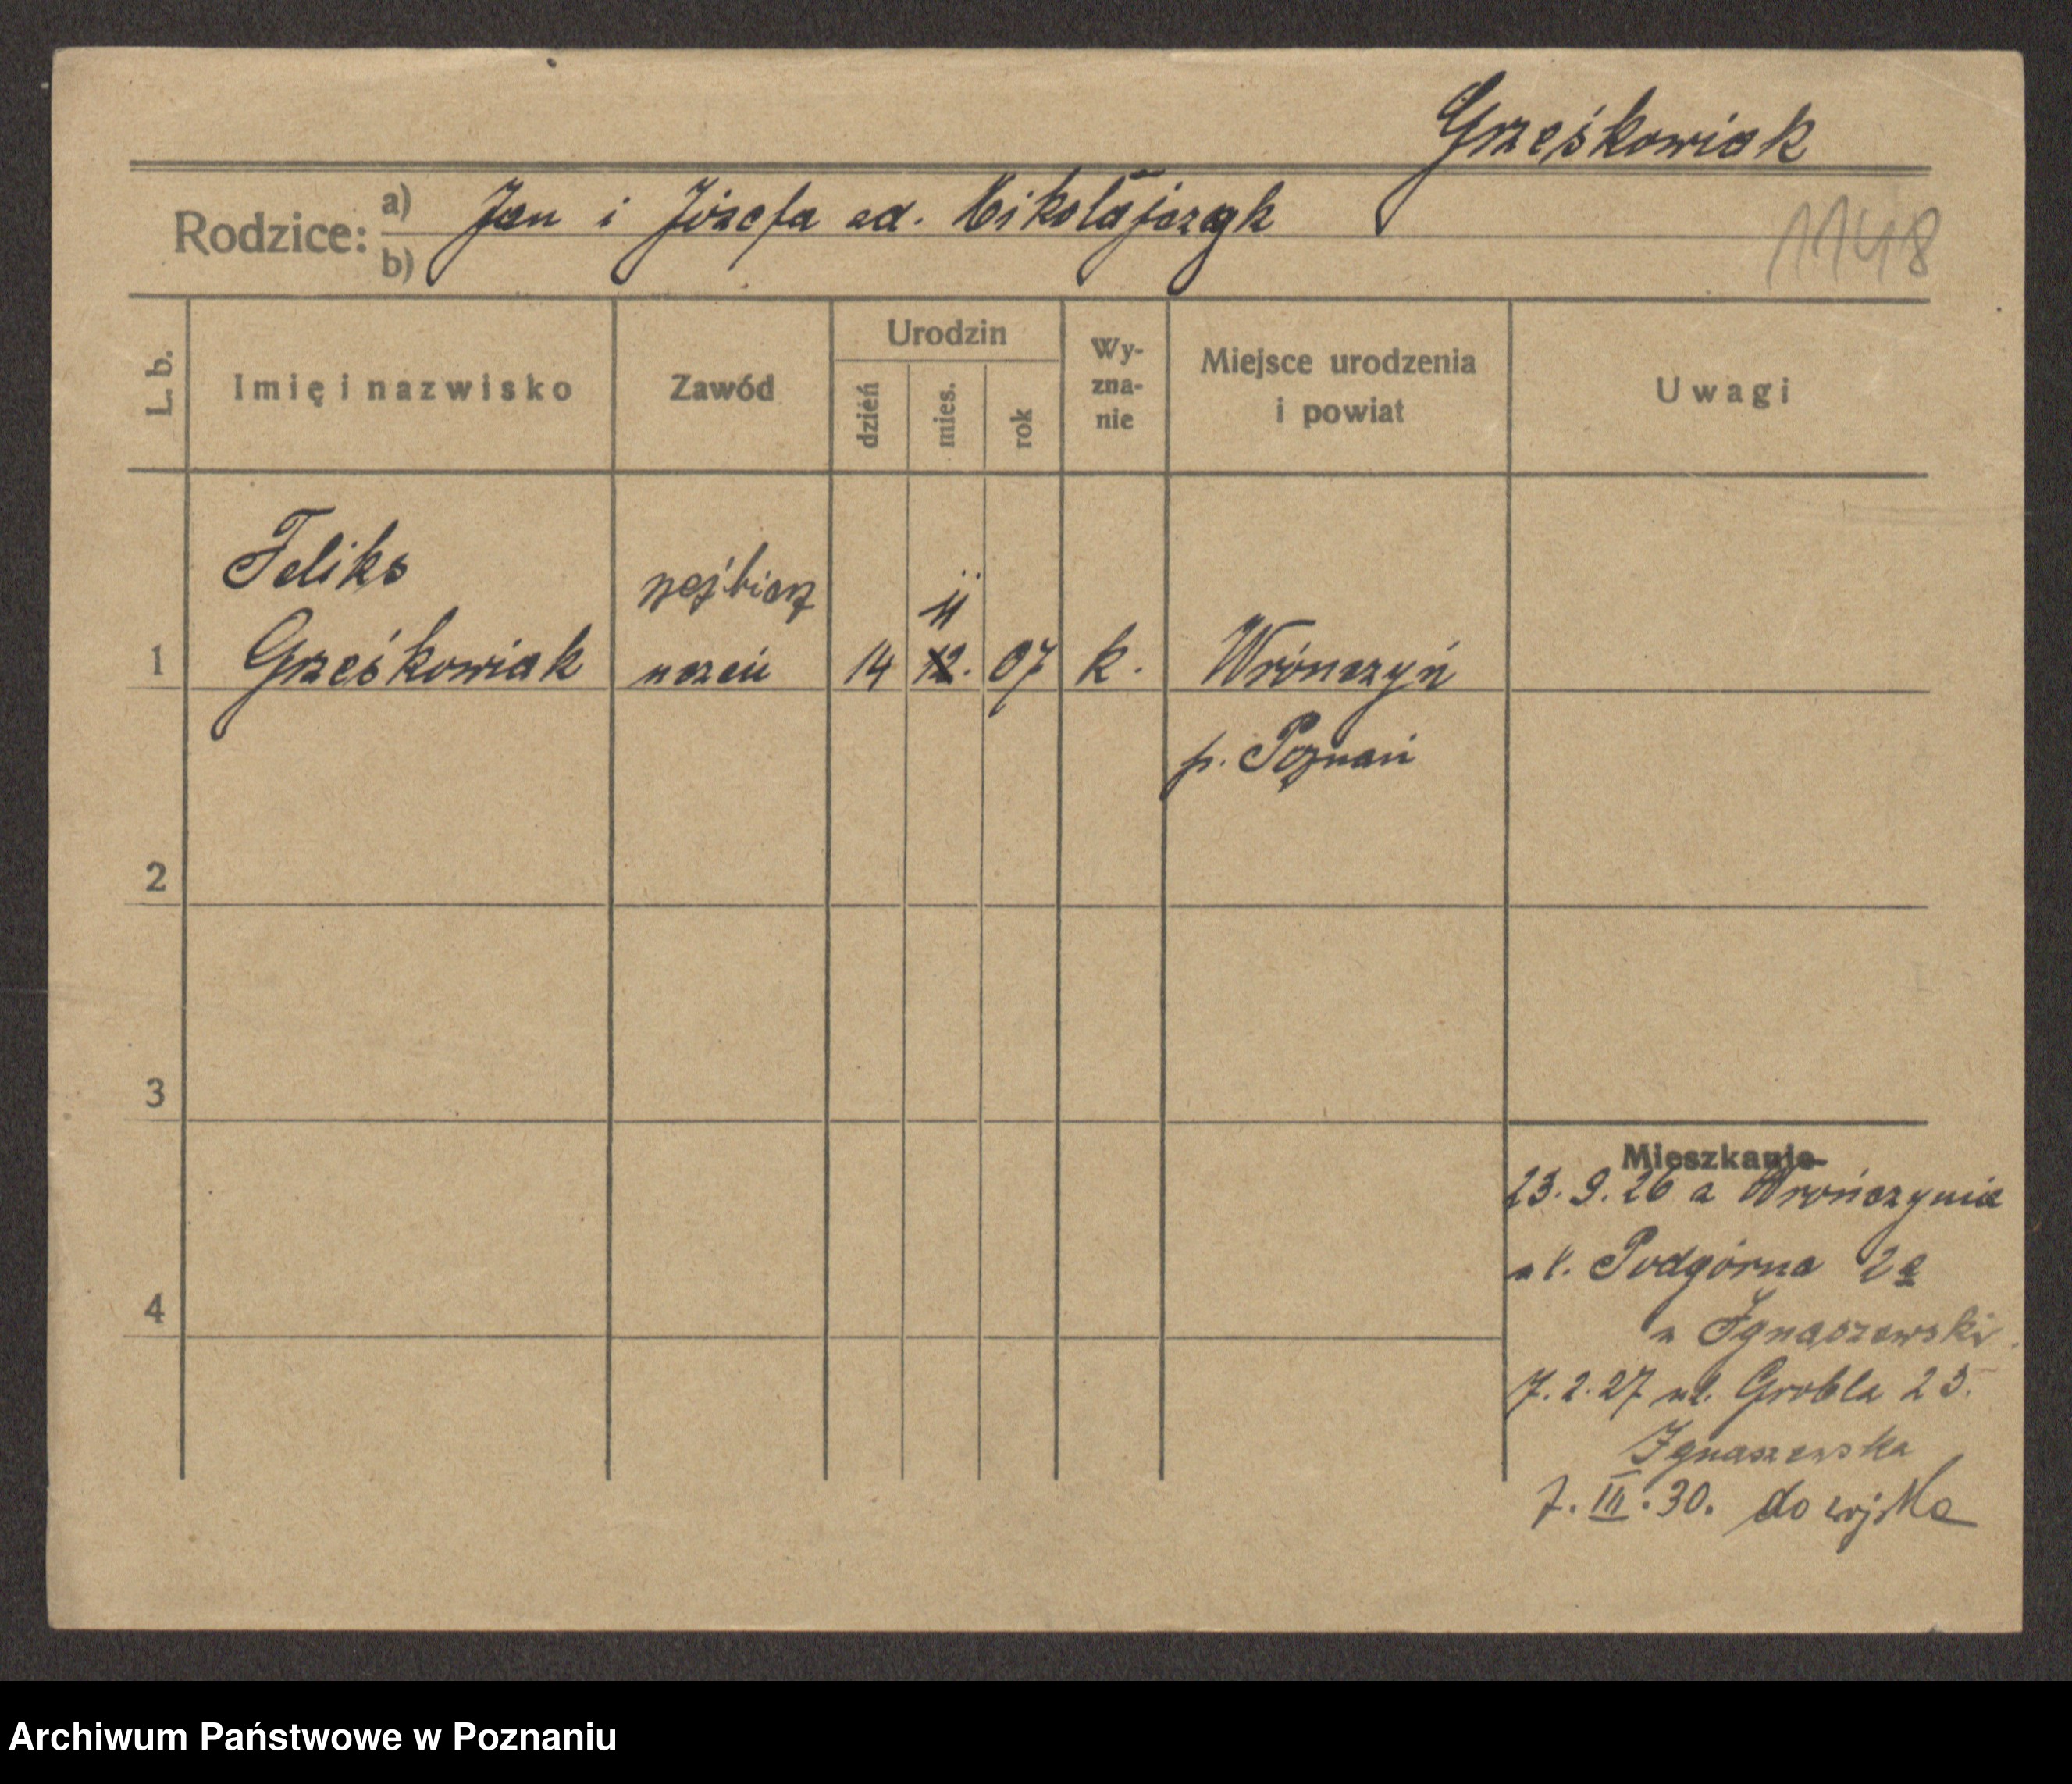 Grześkowiak
Rodzice: a) Jan i Józefa zd. Mikołajczyk
b)
1148
L. b.
Imię i nazwisko
Zawód
Urodzin
dzień
mies.
rok
Wy-
zna-
nie
Miejsce urodzenia
i powiat
Uwagi
Feliks
rzeźbiarz
11
1 Grześkowiak uczeń 14 12. 07 k. Wrónczyń
p. Poznań
2
3
4
Mieszkanie
23.9.26 z Wrończynia
ul. Podgórna 2a
u Ignaszewski
7.2.27 ul. Grobla 25.
Ignaszewska
7. III. 30. do wojska
Archiwum Państwowe w Poznaniu